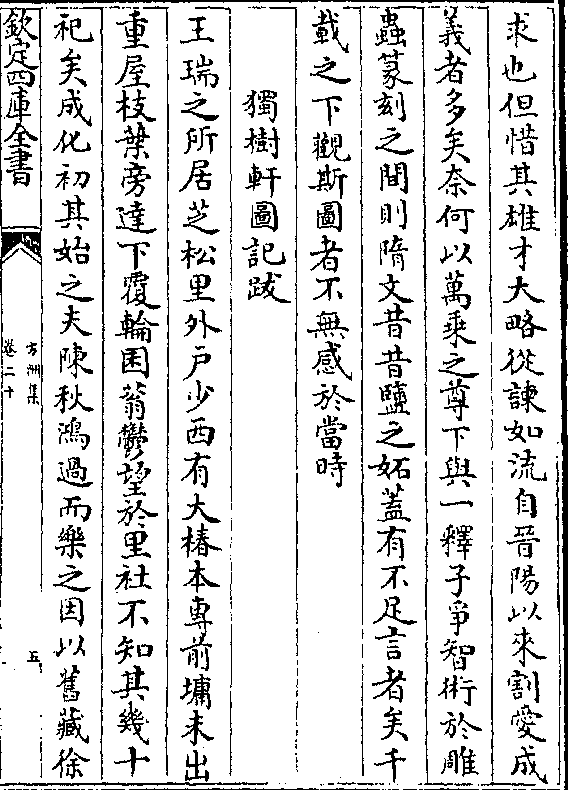 求也但惜其雄才大略從諫如流自晉陽以來割愛成
義者多矣奈何以萬乘之尊下與一釋子爭智術於雕
蟲篆刻之間則隋文昔昔鹽之妬蓋有不足言者矣千
載之下觀斯圖者不無感於當時
獨樹軒圖記跋
王瑞之所居芝松里外戶少西有大椿本專前墉末出
重屋枝葉旁達下覆輪囷蓊鬱望於里社不知其幾十
祀矣成化初其始之夫陳秋鴻過而樂之因以舊藏徐
欽定四庫全書
方洲集
卷二十
五